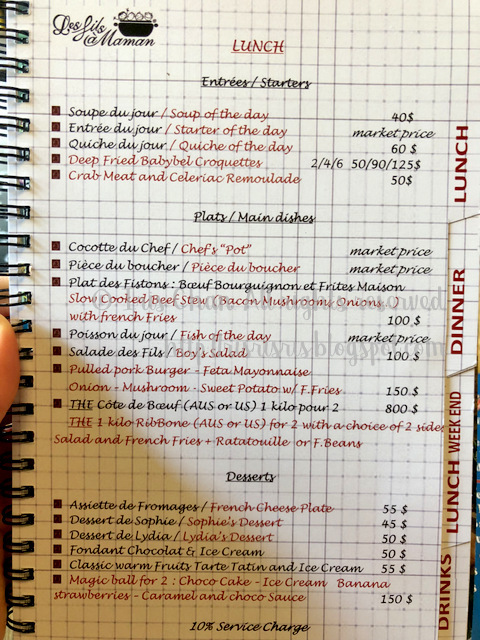 Les fils
à Maman
LUNCH
Entrées / Starters
Soupe du jour / Soup of the day 40$
Entrée du jour / Starter of the day market price
Quiche du jour / Quiche of the day 60 $
Deep Fried Babybel Croquettes 2/4/6 50/90/125$
Crab Meat and Celeriac Remoulade 50$
Plats / Main dishes
Cocotte du Chef / Chef's "Pot" market price
Pièce du boucher / Pièce du boucher market price
Plat des Fistons : Bœuf Bourguignon et Frites Maison
Slow Cooked Beef Stew - Bacon Mushrooms Onions
with french Fries 100 $
Poisson du jour / Fish of the day market price
Salade des Fils / Boy's Salad 100 $
Pulled pork Burger - Feta Mayonnaise
Onion - Mushroom - Sweet Potato w/ F.Fries 150 $
THE Côte de Bœuf (AUS or US) 1 kilo pour 2 800 $
THE 1 kilo RibBone (AUS or US) for 2 with a choice of 2 sides
Salad and French Fries + Ratatouille or F.Beans
Desserts
Assiette de Fromages / French Cheese Plate 55 $
Dessert de Sophie / Sophie's Dessert 45 $
Dessert de Lydia / Lydia's Dessert 50 $
Fondant Chocolat & Ice Cream 50 $
Classic warm Fruits Tarte Tatin and Ice Cream 55 $
Magic ball for 2 : Choco Cake - Ice Cream Banana
strawberries - Caramel and choco Sauce 150 $
10% Service Charge
LUNCH
DINNER
LUNCH WEEK END
DRINKS